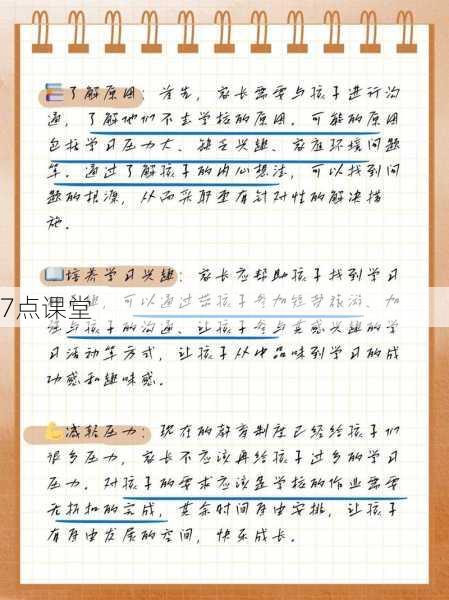 了解原因：首先，家长需要与孩子进行沟
通，了解他们不去学校的原因。可能的原因
包括学习压力大、缺乏兴趣、家庭环境问题
等。通过了解孩子的内心想法，可以找到问
题的根源，从而采取更有针对性的解决措
施。
培养学习兴趣：家长应帮助孩子找到学习
趣，可以通过带孩子参加短营旅游、加
强与孩子的沟通、让孩子参与其感兴趣的学
习活动等方式，让孩子从中品味到学习的成
功感和趣味感。
7点课堂
减轻压力：现在的教育制度已经给孩子们
很多压力，家长不应该再给孩子过多的学习
压力。对孩子的要求应该是学校的作业需要
无折扣的完成，其余时间自由安排，让孩子
有自由发展的空间，快乐成长。